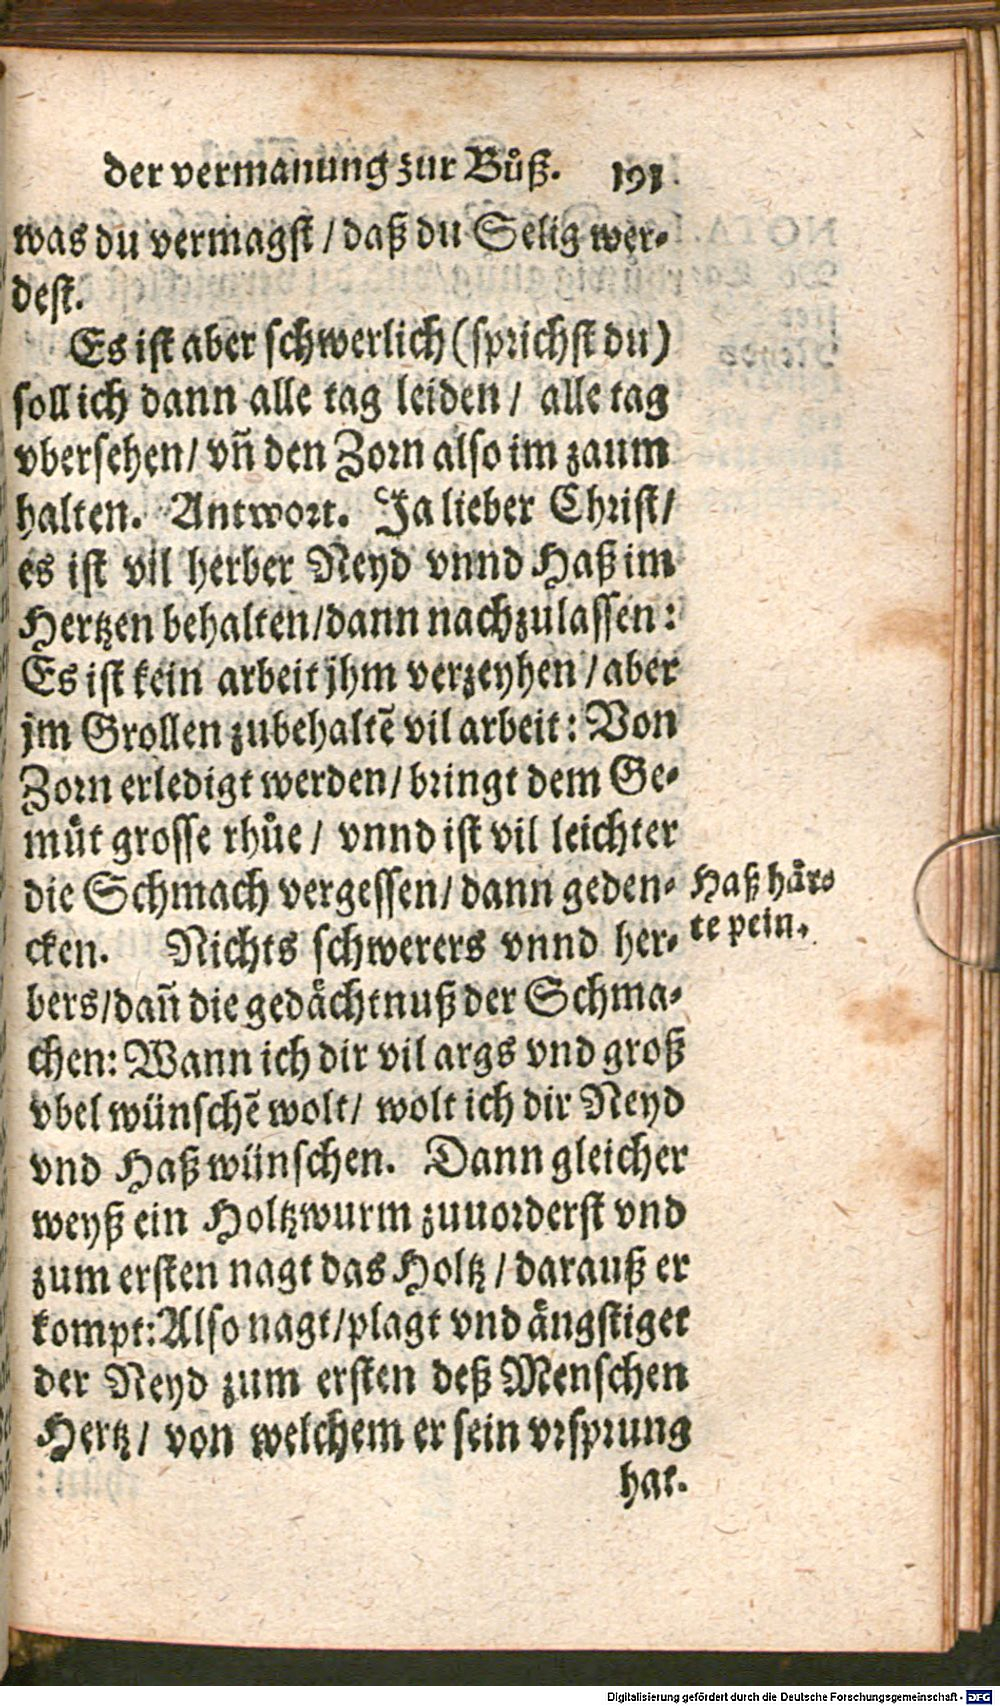 der vermanung zur Bůß. 191
was du vermagst / daß du Selig wer-
dest.
Es ist aber schwerlich (sprichst du)
soll ich dann alle tag leiden / alle tag
vbersehen / vñ den Zorn also im zaum
halten. Antwort. Ja lieber Christ /
es ist vil herber Neyd vnnd Haß im
Hertzen behalten / dann nachzulassen:
Es ist kein arbeit jhm verzeyhen / aber
jm Grollen zubehaltē vil arbeit: Von
Zorn erledigt werden / bringt dem Ge-
müt grosse rhůe / vnnd ist vil leichter
die Schmach vergessen / dann geden-
cken. Nichts schwerers vnnd her-
bers / dañ die gedächtnuß der Schma-
chen: Wann ich dir vil args vnd groß
vbel wünschē wolt / wolt ich dir Neyd
vnd Haß wünschen. Dann gleicher
weyß ein Holtzwurm zuuorderst vnd
zum ersten nagt das Holtz / darauß er
kompt: Also nagt / plagt vnd ängstiget
der Neyd zum ersten deß Menschen
Hertz / von welchem er sein vrsprung
hat.
Haß här-
te pein.
Digitalisierung gefördert durch die Deutsche Forschungsgemeinschaft - DFG